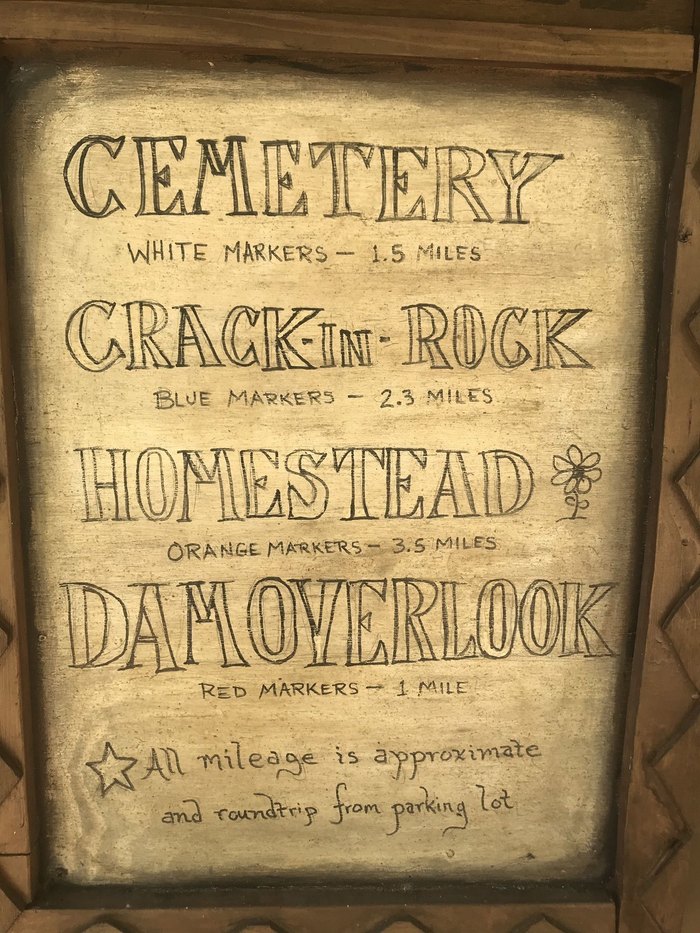 CEMETERY
WHITE MARKERS – 1.5 MILES
CRACK-IN-ROCK
BLUE MARKERS – 2.3 MILES
HOMESTEAD
ORANGE MARKERS – 3.5 MILES
DAM OVERLOOK
RED MARKERS – 1 MILE
All mileage is approximate
and roundtrip from parking lot